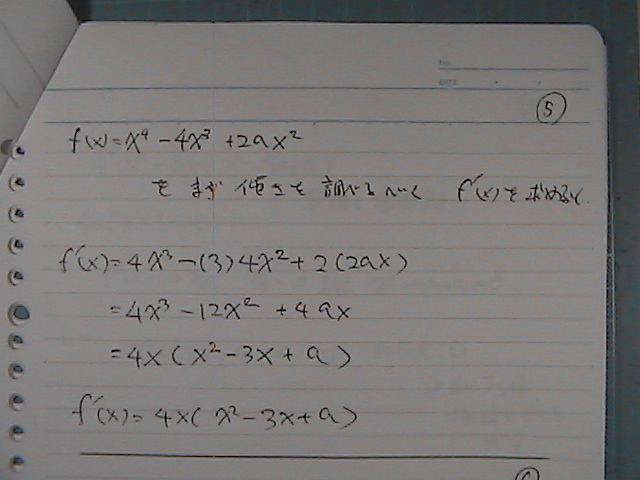 No.
DATE
⑤
f(x)=x⁴-4x³+2ax²
をまず傾きを調べるべく f'(x)を求めると
f'(x)=4x³-(3)4x²+2(2ax)
=4x³-12x²+4ax
=4x(x²-3x+a)
f'(x)=4x(x²-3x+a)